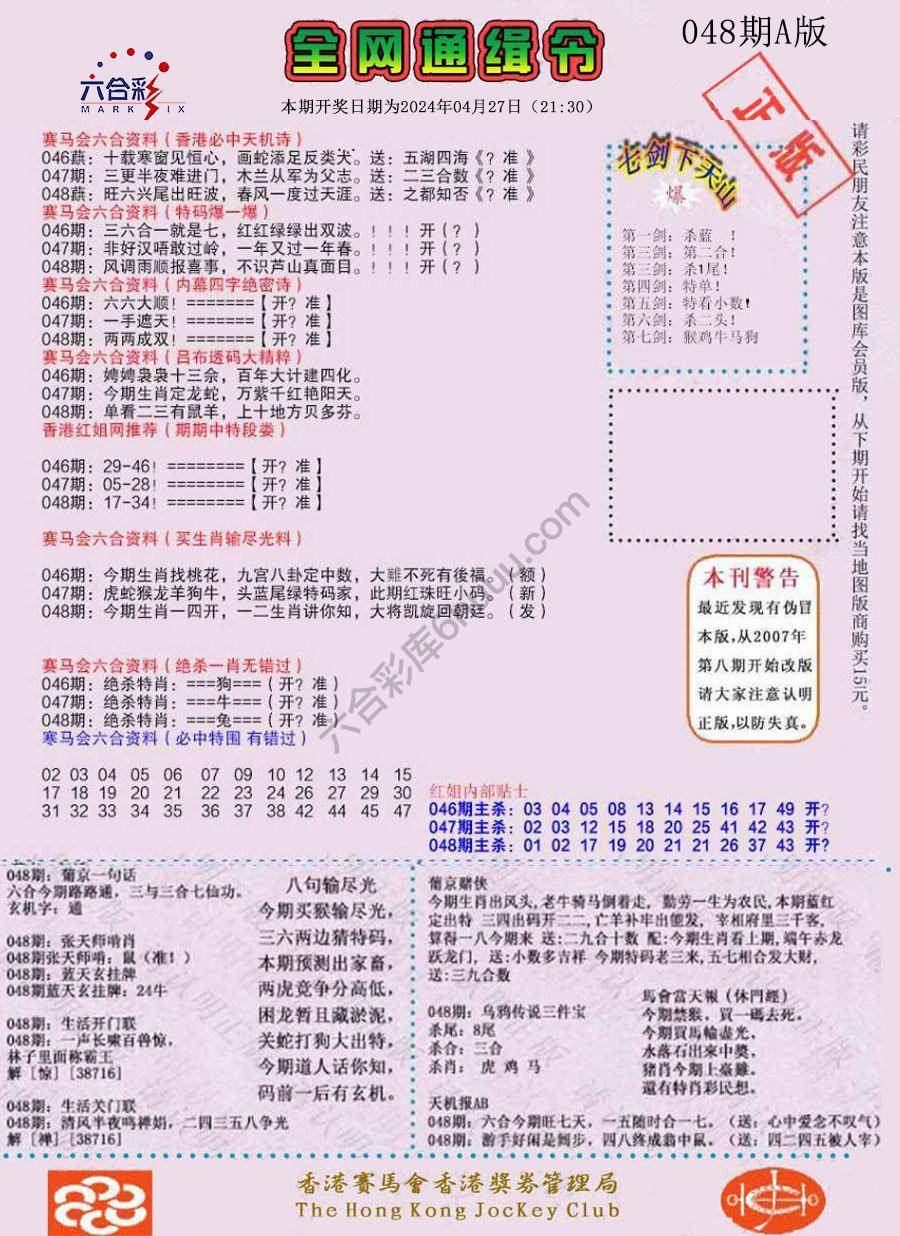 全网通缉令
048期A版
六合彩
MARK SIX
本期开奖日期为2024年04月27日（21:30）
正版
赛马会六合资料（香港必中天机诗）
046蕻：十载寒窗见恒心，画蛇添足反类犬。送：五湖四海《？准 》
047期：三更半夜难进门，木兰从军为父志。送：二三合数《？准 》
048蕻：旺六兴尾出旺波，春风一度过天涯。送：之都知否《？准 》
赛马会六合资料（特码爆一爆）
046期：三六合一就是七，红红绿绿出双波。！！！开（？）
047期：非好汉唔敢过岭，一年又过一年春。！！！开（？）
048期：风调雨顺报喜事，不识芦山真面目。！！！开（？）
赛马会六合资料（内幕四字绝密诗）
046期：六六大顺！=======【开？准】
047期：一手遮天！=======【开？准】
048期：两两成双！=======【开？准】
赛马会六合资料（吕布透码大精粹）
046期：娉娉袅袅十三余，百年大计建四化。
047期：今期生肖定龙蛇，万紫千红艳阳天。
048期：单看二三有鼠羊，上十地方贝多芬。
香港红姐网推荐（期期中特段娄）
046期：29-46！========【开？准】
047期：05-28！========【开？准】
048期：17-34！========【开？准】
赛马会六合资料（买生肖输尽光料）
046期：今期生肖找桃花，九宫八卦定中数，大難不死有後福。（额）
047期：虎蛇猴龙羊狗牛，头蓝尾绿特码家，此期红珠旺小码。（新）
048期：今期生肖一四开，一二生肖讲你知，大将凯旋回朝廷。（发）
赛马会六合资料（绝杀一肖无错过）
046期：绝杀特肖：===狗===（开？准）
047期：绝杀特肖：===牛===（开？准）
048期：绝杀特肖：===兔===（开？准）
寒马会六合资料（必中特围 有错过）
02 03 04 05 06 07 09 10 12 13 14 15
17 18 19 20 21 22 23 24 26 27 29 30
31 32 33 34 35 36 37 38 42 44 45 47
七剑下天山
爆
第一剑：杀蓝 ！
第三剑：第二合！
第三剑：杀1尾！
第四剑：特单！
第五剑：特看小数！
第六剑：杀二头！
第七剑：猴鸡牛马狗
请彩民朋友注意本版是图库会员版，从下期开始请找当地图版商购买15元。
本刊警告
最近发现有伪冒
本版，从2007年
第八期开始改版
请大家注意认明
正版，以防失真。
六合彩库6htuu.com
红姐内部贴士
046期主杀：03 04 05 08 13 14 15 16 17 49 开？
047期主杀：02 03 12 15 18 20 25 41 42 43 开？
048期主杀：01 02 17 19 20 21 21 26 37 43 开？
048期：葡京一句话
六合今期路路通，三与三合七仙功。
玄机字：通
048期：张天师哨肖
048期张天师哨：鼠（准！）
048期：蓝天玄挂牌
048期蓝天玄挂牌：24牛
048期：生活开门联
048期：一声长啸百兽惊，
林子里面称霸王
解［惊］[38716]
048期：生活关门联
048期：清风半夜鸣禅娟，二四三五八争光
解［禅］[38716]
八句输尽光
今期买猴输尽光，
三六两边猜特码，
本期预测出家畜，
两虎竞争分高低，
困龙暂且藏淤泥，
关蛇打狗大出特，
今期道人话你知，
码前一后有玄机。
葡京赌侠
今期生肖出风头，老牛骑马倒着走， 勤劳一生为农民，本期蓝红
定出特 三四出码开二二，亡羊补牢出能发， 宰相府里三千客，
算得一八今期来 送：二九合十数 配：今期生肖看上期，端午赤龙
跃龙门， 送：小数多吉祥 今期特码老三来，五七相合发大财，
送：三九合数
048期：乌鸦传说三件宝
杀尾：8尾
杀合：三合
杀肖： 虎 鸡 马
馬會當天報（休門經）
今期禁猴，買一碼去死。
今期買馬輸盡光，
水落石出來中獎，
豬肖今期上臺難。
還有特肖彩民想。
天机报AB
048期：六合今期旺七天，一五随时合一七。（送：心中爱念不叹气）
048期：游手好闲是阔步，四八终成翁中鼠。（送：四二四五被人宰）
香港賽馬會香港獎券管理局
The Hong Kong JocKey Club